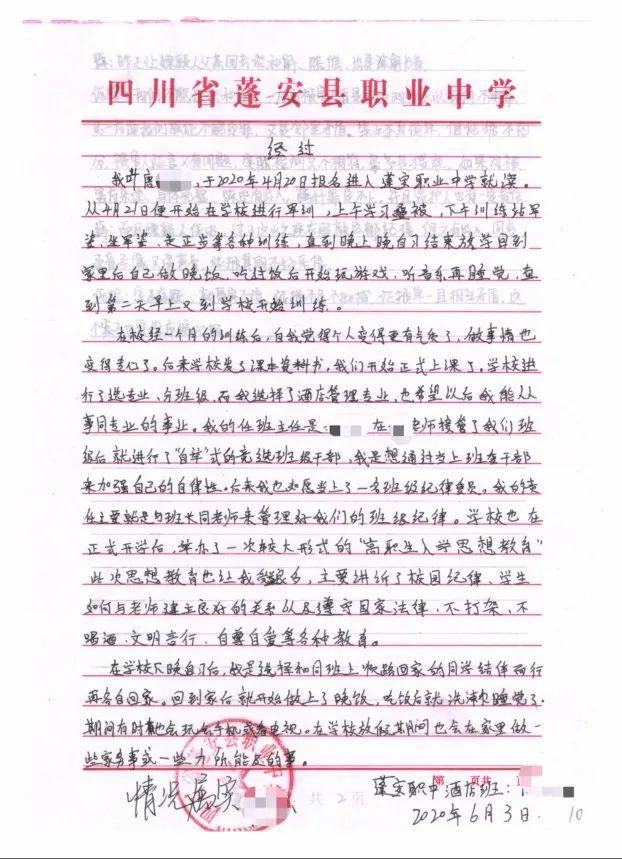 四川省蓬安县职业中学
经过
我叫唐，于2020年4月20日报名进入蓬安职业中学就读。
从4月21日便开始在学校进行军训，上午学习叠被，下午训练站军
姿、坐军姿、走正步等各种训练，直到晚上晚自习结束放学回到
家里后自己做晚饭，吃过饭后开始玩游戏，听音乐再睡觉，直
到第二天早上又到学校开始训练。
在校经一个月的训练后，自我觉得个人变得更有气质了，做事情也
变得专心了。后来学校发了课本资料书，我们开始正式上课了。学校进
行了选专业、分班级，而我选择了酒店管理专业，也希望以后我能从
事同专业的事业。我的任班主任是 在 老师接管了我们班
级后就进行了“自荐”式的竞选班级干部，我是想通过当上班委干部
来加强自己的自律性。后来我也如愿当上了一名班级纪律委员。我的责
任主要就是与班长同老师来管理好我们的班级纪律。学校也在
正式开学后，举办了一次较大形式的“高职生入学思想教育”
此次思想教育也让我受益良多，主要讲诉了校园纪律、学生
如何与老师建立良好的关系以及遵守国家法律，不打架，不
喝酒，文明言行，自尊自爱等各种教育。
在学校下晚自习后，我是选择和同班上顺路回家的同学结伴而行
再各自回家。回到家后就开始做上了晚饭，吃饭后就洗漱睡觉了.
期间有时也会玩会手机或看电视。在学校放假期间也会在家里做一
些家务事或一些力所能及的事。
情况属实
共2页
第 页共
蓬安职中酒店班：
2020年6月3日.
10